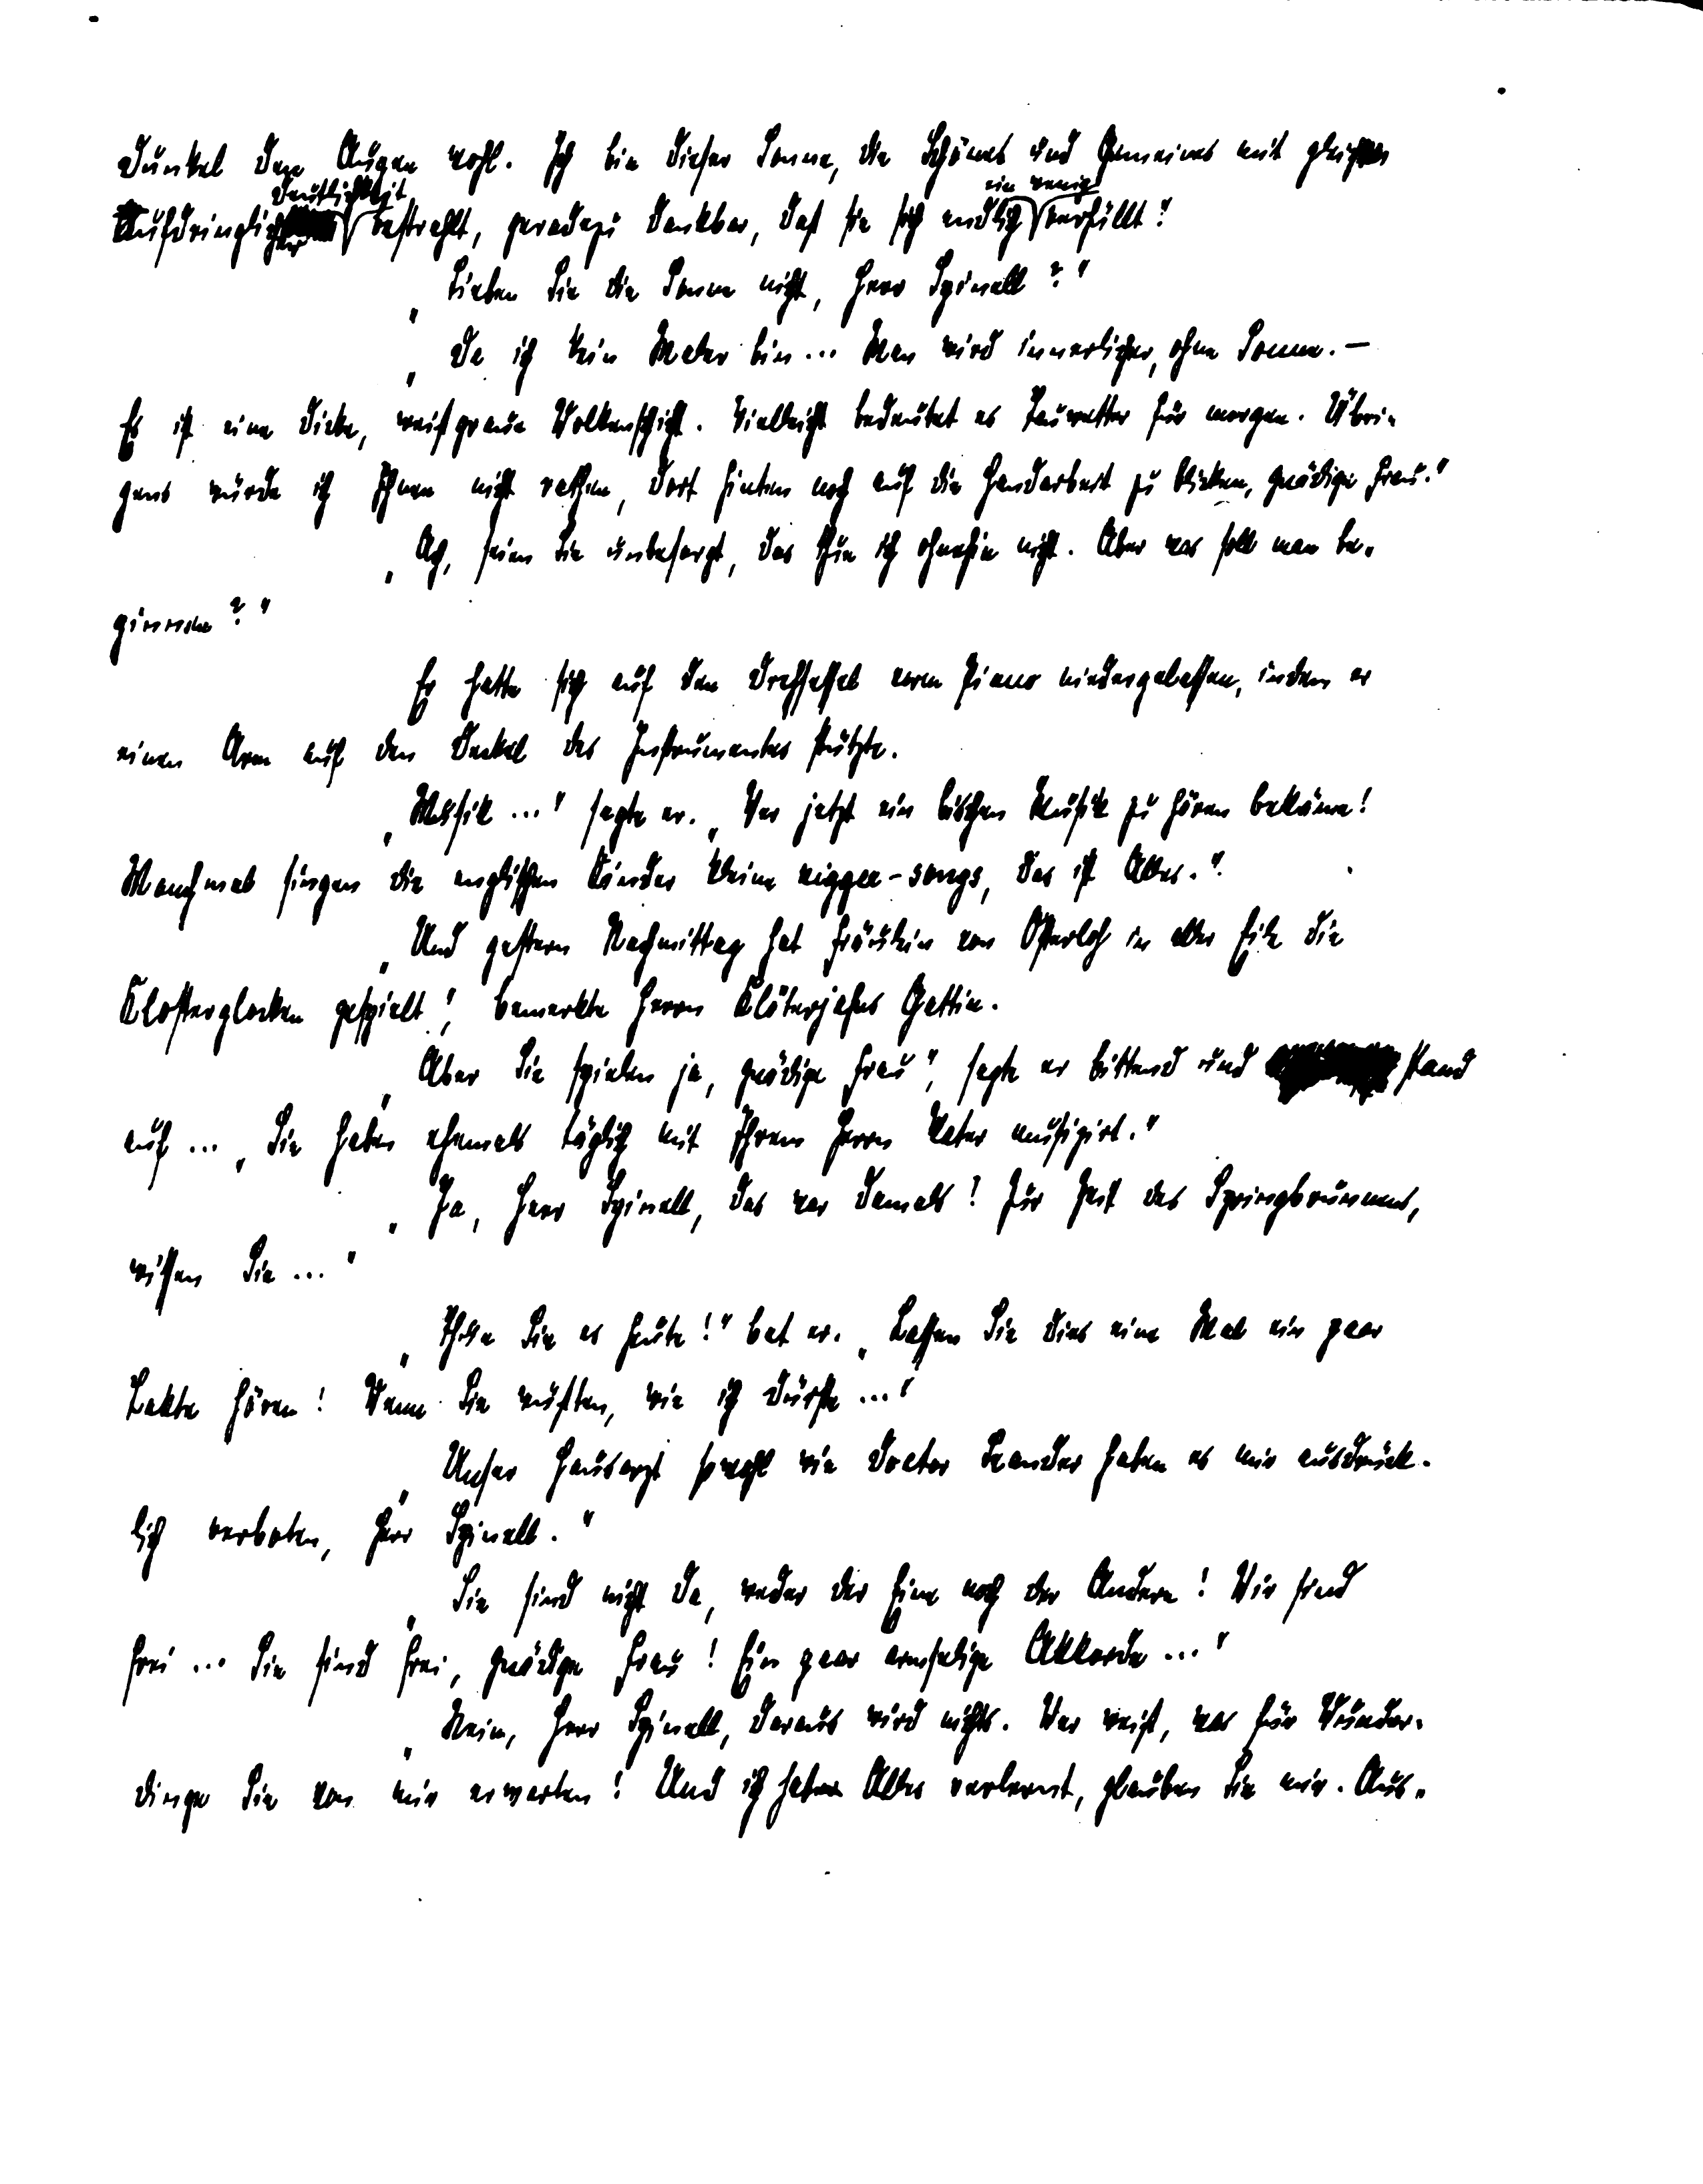 Dunkel den Augen wohl. Ich bin dieser Sonne, die Schönes und Gemeines mit gleicher
Deutlichkeit ein wenig
aufdringlicher bestrahlt, geradezu dankbar, daß sie sich endlich verhüllt!
„Lieben Sie die Sonne nicht, Herr Spinell?"
„Da ich kein Maler bin... Man wird innerlicher, ohne Sonne. —
Es ist eine dicke, weißgraue Wolkenschicht. Vielleicht bedeutet es Tauwetter für morgen. Übri-
gens würde ich Ihnen nicht rathen, dort hinten noch auf die Handarbeit zu blicken, gnädige Frau."
„Ach, seien Sie unbesorgt, das thue ich ohnehin nicht. Aber was soll man be-
ginnen?"
Er hatte sich auf den Drehsessel vorm Piano niedergelassen, indem er
einen Arm auf den Deckel des Instrumentes stützte.
„Musik ..." sagte er. „Wer jetzt ein bischen Musik zu hören bekäme!
Manchmal singen die englischen Kinder kleine nigger-songs, das ist Alles."
„Und gestern Nachmittag hat Fräulein von Osterloh in aller Eile die
Klosterglocken gespielt", bemerkte Herrn Klöterjahns Gattin.
„Aber Sie spielen ja, gnädige Frau", sagte er bittend und stand
auf ... „Sie haben ehemals täglich mit Ihrem Herrn Vater musizirt."
„Ja, Herr Spinell, das war damals! Zur Zeit des Springbrunnens,
wissen Sie ..."
„Thun Sie es heute!" bat er. „Lassen Sie dies eine Mal ein paar
Takte hören! Wenn Sie wüßten, wie ich dürste ..."
„Unser Hausarzt sowohl wie Doctor Leander haben es mir ausdrück-
lich verboten, Herr Spinell."
„Sie sind nicht da, weder der Eine noch der Andere! Wir sind
frei ... Sie sind frei, gnädige Frau! Ein paar armselige Akkorde ..."
„Nein, Herr Spinell, daraus wird nichts. Wer weiß, was für Wunder-
dinge Sie von mir erwarten! Und ich habe Alles verlernt, glauben Sie mir. Aus-